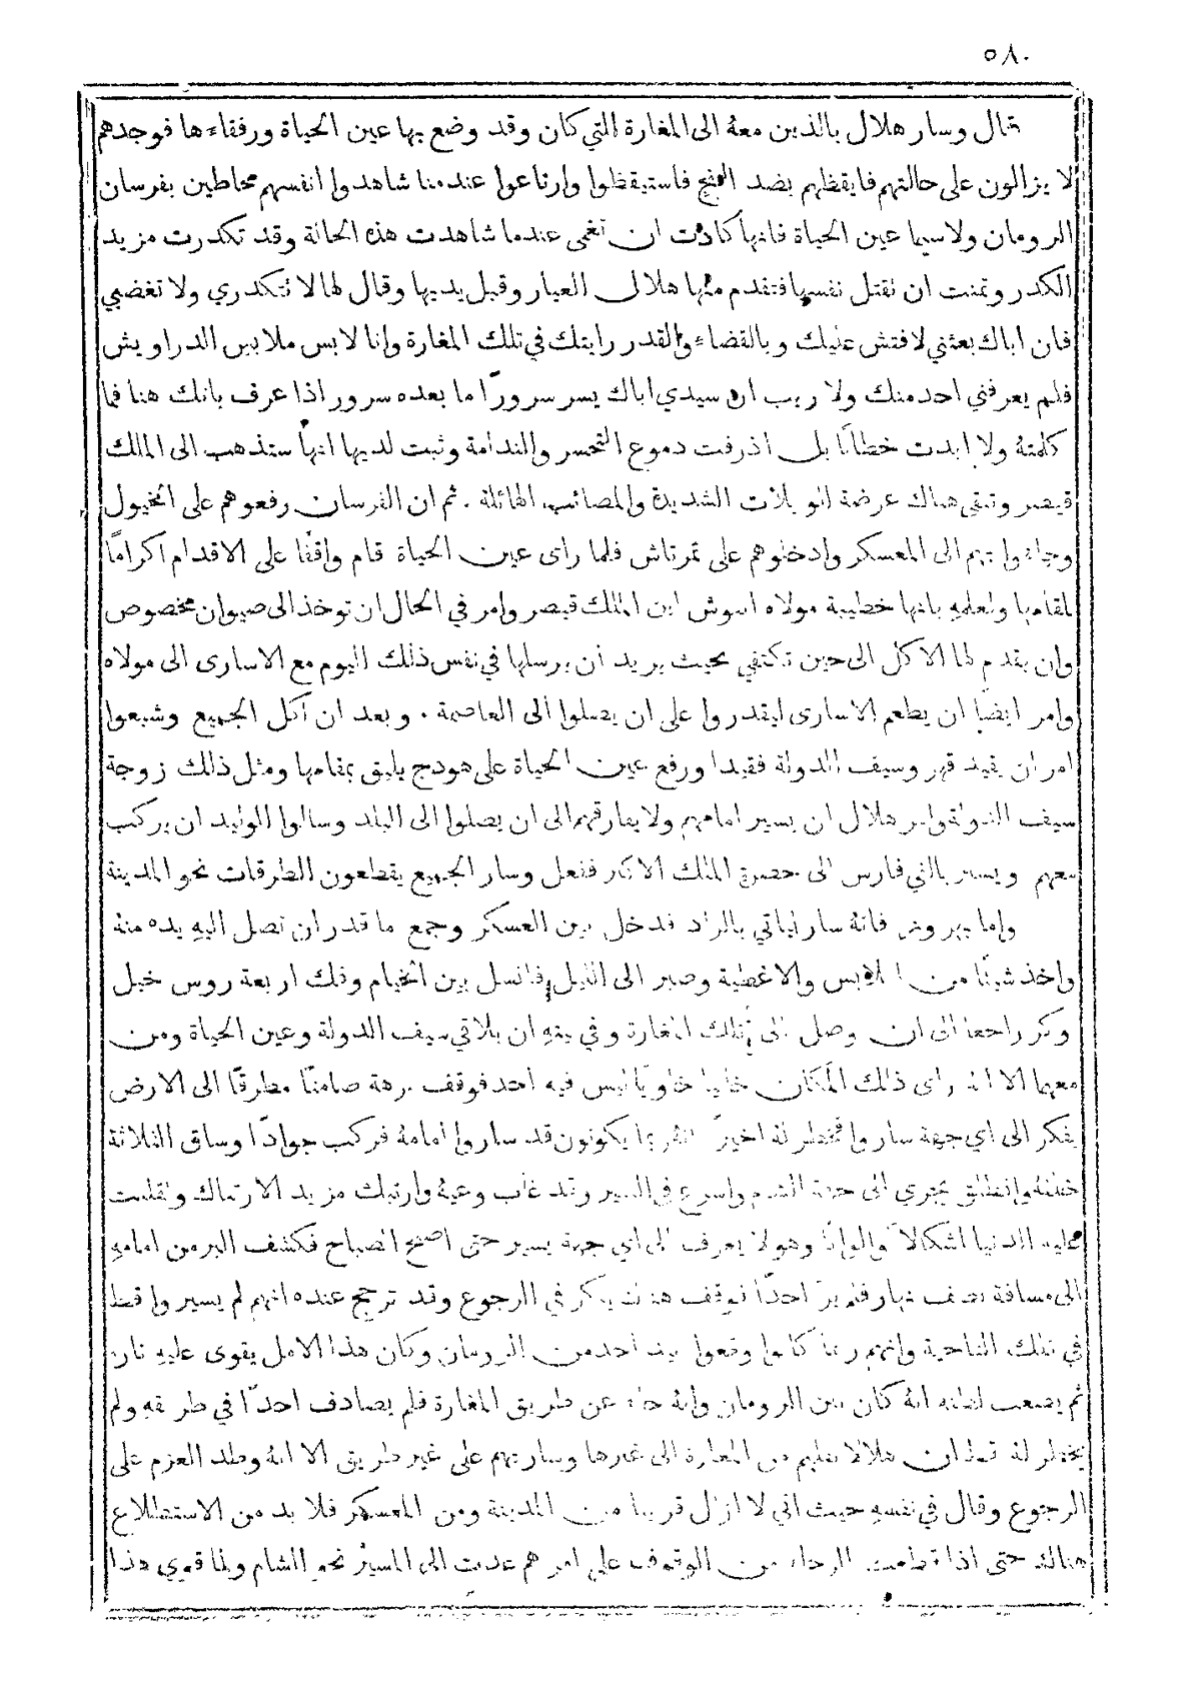 ٥٨٠
قال وسار هلال بالذين معهُ الى المغارة التي كان وقد وضع بها عين الحياة ورفقاءها فوجدهم
لا يزالون على حالتهم فايقظهم بضد البنج فاستيقظوا وارتاعوا عندما شاهدوا انفسهم محاطين بفرسان
الرومان ولاسيما عين الحياة فانها كادت ان تغمى عندما شاهدت هذه الحالة وقد تكدرت مزيد
الكدر وتمنت ان تقتل نفسها فتقدم منها هلال العيار وقبل يديها وقال لها لا تتكدري ولا تغضبي
فان اباك بعثني لافتش عليك وبالقضاء والقدر رايتك في تلك المغارة وانا لابس ملابس الدراويش
فلم يعرفني احد منك ولا ريب ان سيدي اباك يسر سرورًا ما بعده سرور اذا عرف بانك هنا فما
كلمتهُ ولا ابدت خطابًا بل اذرفت دموع التحسر والندامة وثبت لديها انها ستذهب الى الملك
قيصر وتبقى هناك عرضة الويلات الشديدة والمصائب الهائلة . ثم ان الفرسان رفعوهم على الخيول
وجاءوا بهم الى المعسكر وادخلوهم على تمرتاش فلما راى عين الحياة قام واقفًا على الاقدام اكرامًا
لمقامها ولعلمهِ بانها خطيبة مولاه اسوش ابن الملك قيصر وامر في الحال ان توخذ الى صيوان مخصوص
وان يقدم لها الاكل الى حين تكتفي بحيث يريد ان يرسلها في نفس ذلك اليوم مع الاسارى الى مولاه
وامر ايضًا ان يطعم الاسارى ليقدروا على ان يصلوا الى العاصمة . وبعد ان اكل الجميع وشبعوا
امر ان يقيد قهر وسيف الدولة فقيدا ورفع عين الحياة على هودج يليق بمقامها ومثل ذلك زوجة
سيف الدولة وامر هلال ان يسير امامهم ولا يفارقهم الى ان يصلوا الى البلد وسالوا الوليد ان يركب
معهم ويسير بالني فارس الى حضرة الملك الاكبر ففعل وسار الجميع يقطعون الطرقات نحو المدينة
واما بهروز فانهُ سار لياتي بالزاد فدخل بين العسكر وجمع ما قدر ان تصل اليهِ يده منهُ
واخذ شيئًا من الملابس والاغطية وصبر الى الليل فانسل بين الخيام وفك اربعة روس خيل
وكر راجعا الى ان وصل الى تلك المغارة وفي يقنهِ ان يلاقي سيف الدولة وعين الحياة ومن
معهما الا انهُ راى ذلك المكان خاليا خاويًا ليس فيه احد فوقف برهة صامتًا مطرقًا الى الارض
يفكر الى اي جهة ساروا فخطر لهُ اخيرًا انهم ربما يكونون قد ساروا امامهُ فركب جوادًا وساق الثلاثة
خلفهُ وانطلق يجري الى جهة الشام واسرع في السير وقد غاب وعيهُ وارتبك مزيد الارتباك وتقلبت
عليه الدنيا اشكالًا والوانًا وهو لا يعرف الى اي جهة يسير حتى اصبح الصباح فكشف البر من امامهِ
الى مسافة نصف نهار فلم يرَ احدًا فوقف هناك يفكر في الرجوع وقد ترجح عنده انهم لم يسيروا قط
في تلك الناحية وانهم ربما كانوا وقعوا بيد احد من الرومان وكان هذا الامل يقوى عليهِ تارة
ثم يضعف لظنه انهُ كان بين الرومان وانهُ جاء عن طريق المغارة فلم يصادف احدًا في طريقهِ ولم
يخطر لهُ قط ان هلالا نقلهم من المغارة الى غيرها وسار بهم على غير طريق الا انهُ وطد العزم على
الرجوع وقال في نفسهِ حيث اني لا ازال قريبا من المدينة ومن المعسكر فلا بد من الاستطلاع
هناك حتى اذا قطعت الرجاء من الوقوف على امرهم عدت الى المسير نحو الشام ولما قوي هذا